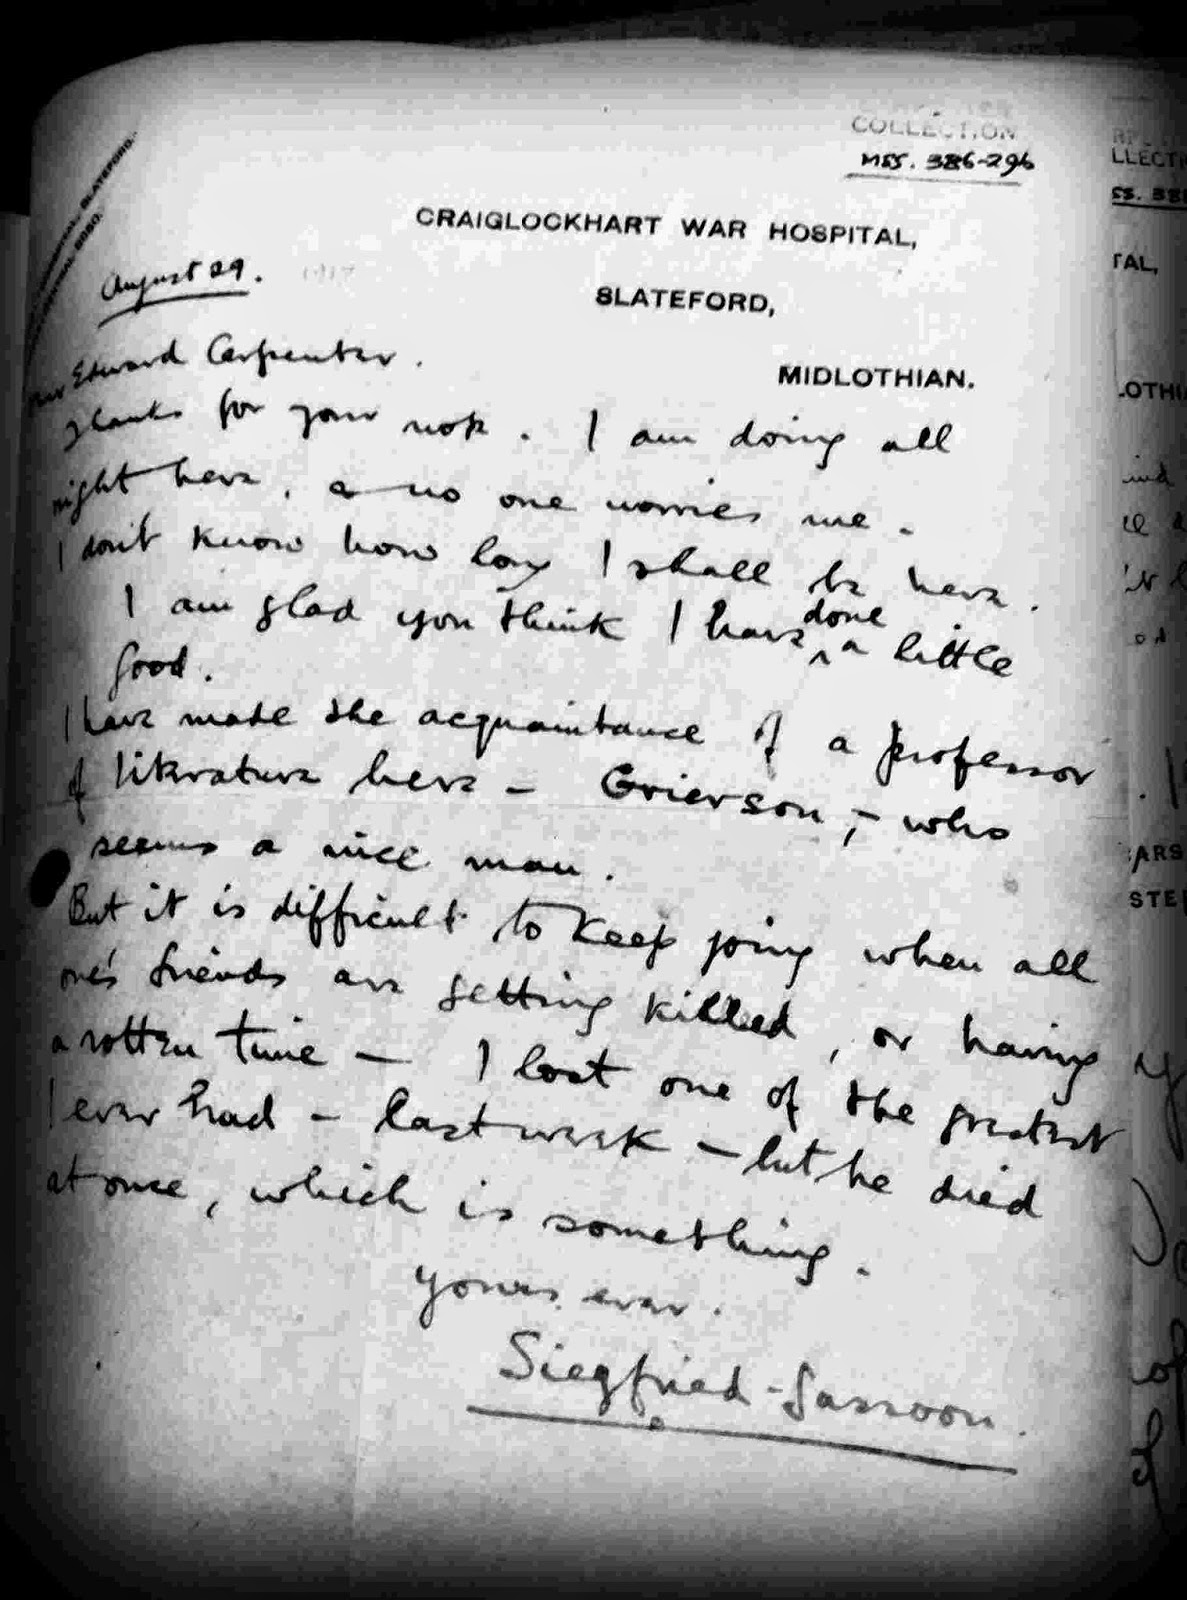 COLLECTION
MSS. 386-296
CRAIGLOCKHART WAR HOSPITAL,
SLATEFORD,
MIDLOTHIAN.
SLATEFORD.
August 29. 1917
Dear Edward Carpenter.
Thanks for your note. I am doing all
right here, & no one worries me.
I don't know how long I shall be here.
I am glad you think I have done a little
good.
I have made the acquaintance of a professor
of literature here – Grierson, – who
seems a nice man.
But it is difficult to keep going when all
one's friends are getting killed, or having
a rotten time – I lost one of the greatest
I ever had – last week – but he died
at once, which is something.
Yours ever.
Siegfried Sassoon.
LLECTI
SS. 386
TAL,
LOTHIA
ARS
STE